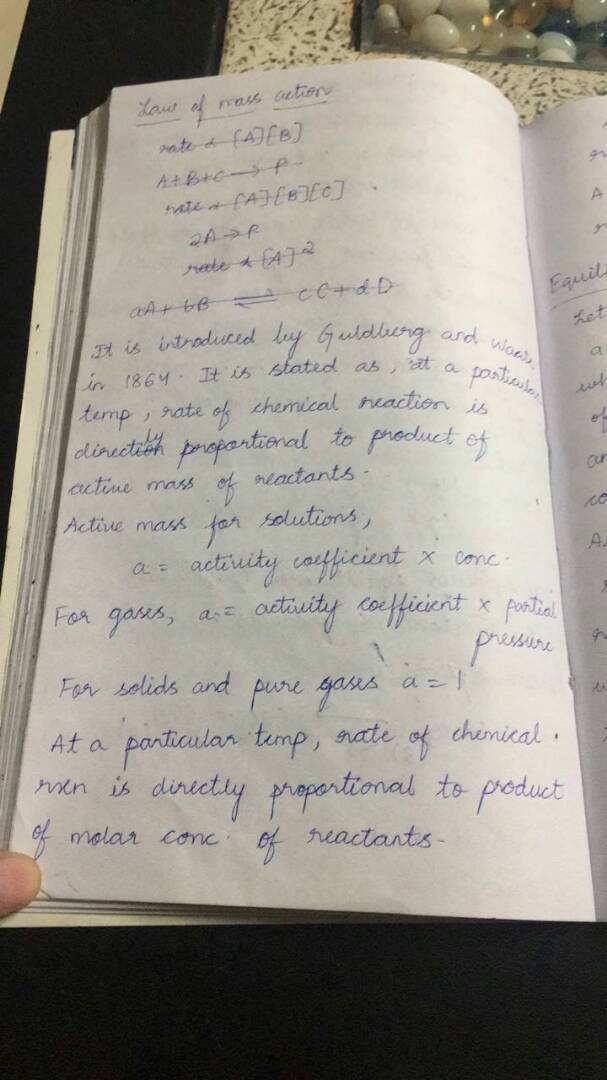 Law of mass action
rate α [A][B]
A+B+C → P
rate α [A][B][C]
2A → P
rate α [A]²
aA + bB ⇌ cC + dD
It is introduced by Guldberg and Waage
in 1864. It is stated as, at a particular
temp, rate of chemical reaction is
directly proportional to product of
active mass of reactants.
Active mass for solutions,
a = activity coefficient × conc.
For gases, a = activity coefficient × partial
pressure
For solids and pure gases a = 1
At a particular temp, rate of chemical.
rxn is directly proportional to product
of molar conc. of reactants.
Equili
Let
a
wh
of
an
co
A